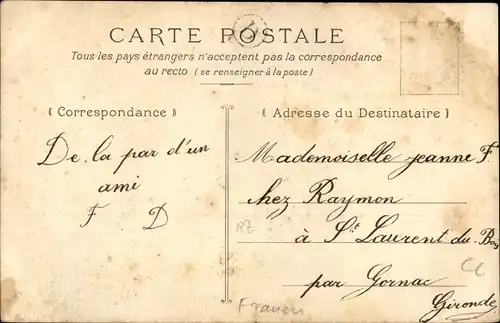 CARTE POSTALE
Tous les pays étrangers n'acceptent pas la correspondance
au recto (se renseigner à la poste)
(Correspondance)
(Adresse du Destinataire)
De la par d'un
ami
F D
Mademoiselle jeanne F.
chez Raymon
à St Laurent du Bois
par Gornac
Gironde